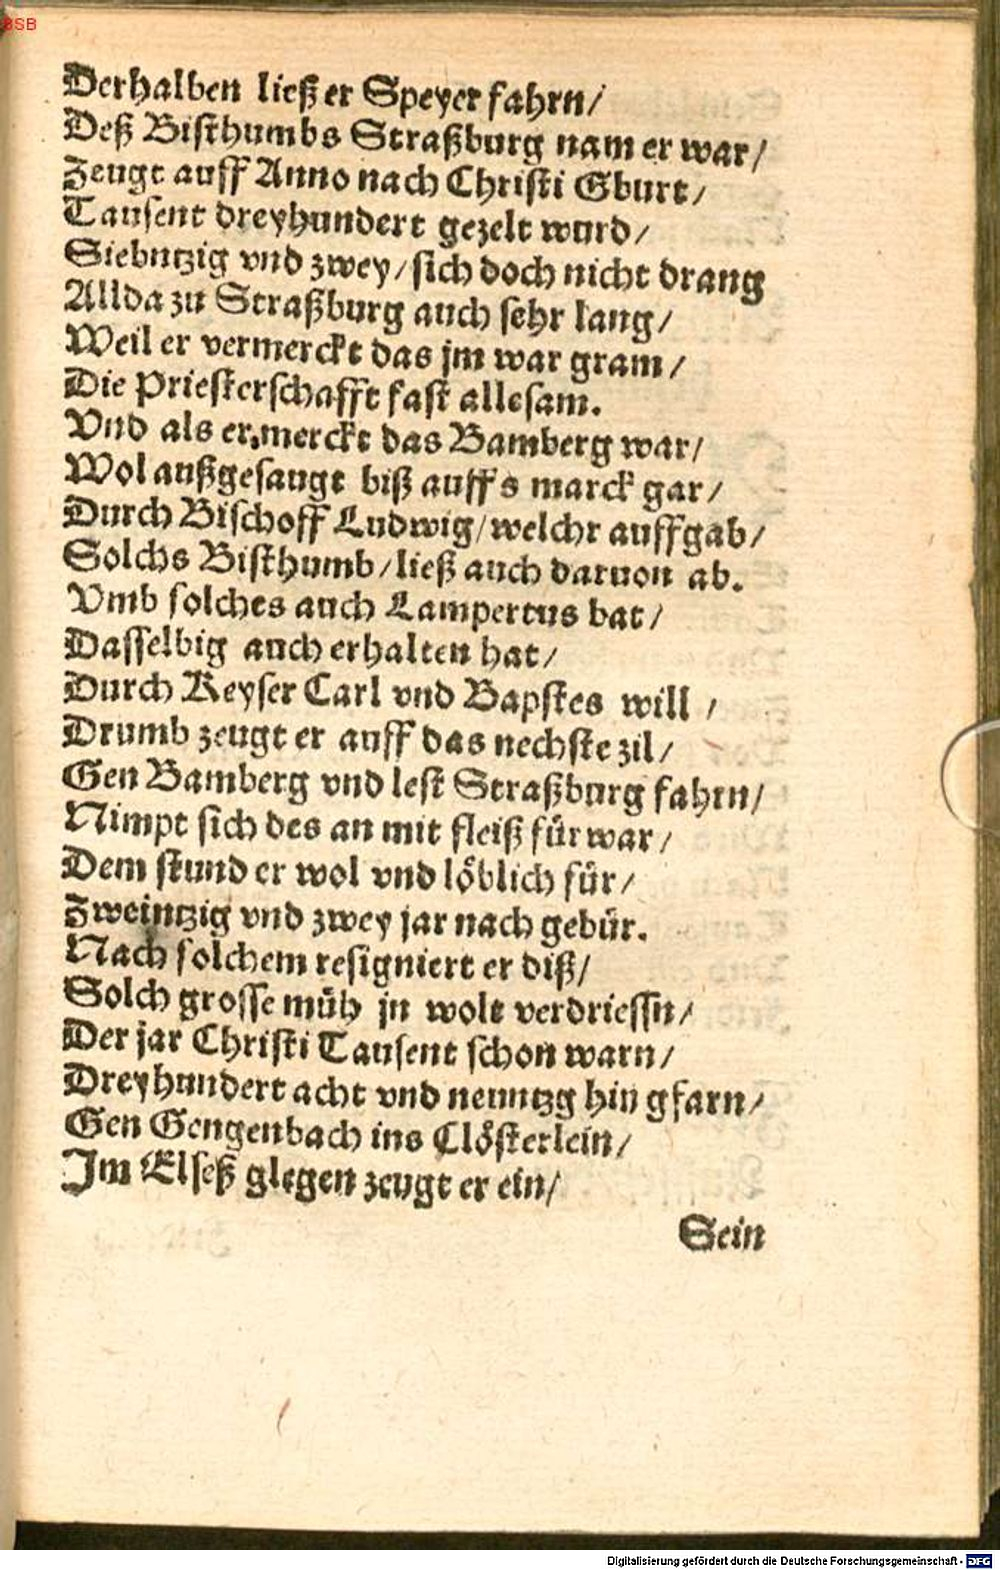 BSB
Derhalben ließ er Speyer fahrn/
Deß Bisthumbs Straßburg nam er war/
Zeugt auff Anno nach Christi Gburt/
Tausent dreyhundert gezelt wurd/
Siebntzig vnd zwey/sich doch nicht drang
Allda zu Straßburg auch sehr lang/
Weil er vermerckt das jm war gram/
Die Priesterschafft fast allesam.
Vnd als er merckt das Bamberg war/
Wol außgesaugt biß auffs marck gar/
Durch Bischoff Ludwig/welchr auffgab/
Solchs Bisthumb/ließ auch daruon ab.
Vmb solches auch Lampertus bat/
Dasselbig auch erhalten hat/
Durch Keyser Carl vnd Bapstes will/
Drumb zeugt er auff das nechste zil/
Gen Bamberg vnd lest Straßburg fahrn/
Nimpt sich des an mit fleiß für war/
Dem stund er wol vnd löblich für/
Zweintzig vnd zwey jar nach gebür.
Nach solchem resigniert er diß/
Solch grosse müh jn wolt verdriessn/
Der jar Christi Tausent schon warn/
Dreyhundert acht vnd neuntzg hin gfarn/
Gen Gengenbach ins Clösterlein/
Im Elseß glegen zeugt er ein/
Sein
Digitalisierung gefördert durch die Deutsche Forschungsgemeinschaft - DFG